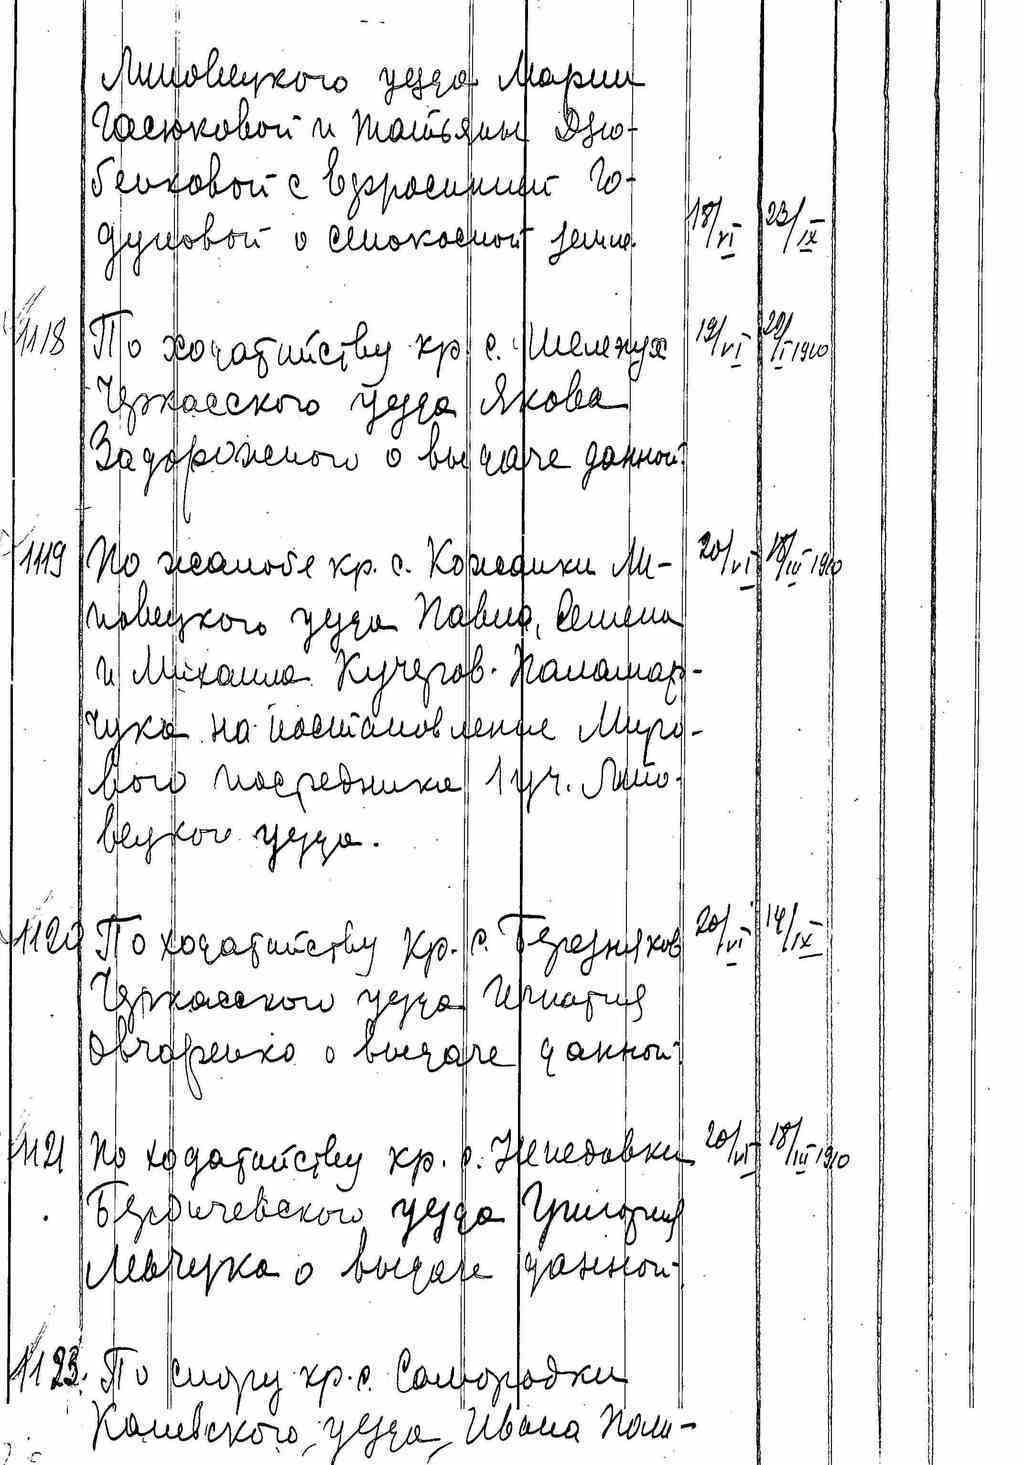 Липовецкого уезда Марии
Гасюковой и Татьяны Дзю-
бенковой с Ефросинией Го-
дуновой о сенокосной земле. 18/VI 23/IX
1118 По ходатайству кр. с. Шелепух 19/VI 20/I 1910
Черкасского уезда Якова
Задорожного о выдаче данной.
1119 По жалобе кр. с. Кожанки Ли- 20/VI 18/III 1910
повецкого уезда Павла, Семена
и Михаила Кучеров-Паламар-
чука на постановление Миро-
вого посредника 1 уч. Липо-
вецкого уезда.
1120 По ходатайству кр. с. Березняков 20/VI 14/IX
Черкасского уезда Игнатия
Овчаренко о выдаче данной.
1121 По ходатайству кр. с. Непедовки 20/VI 18/III 1910
Бердичевского уезда Григория
Левчука о выдаче данной.
1123. По спору кр. с. Самородки
Каневского уезда, Ивана Поли-